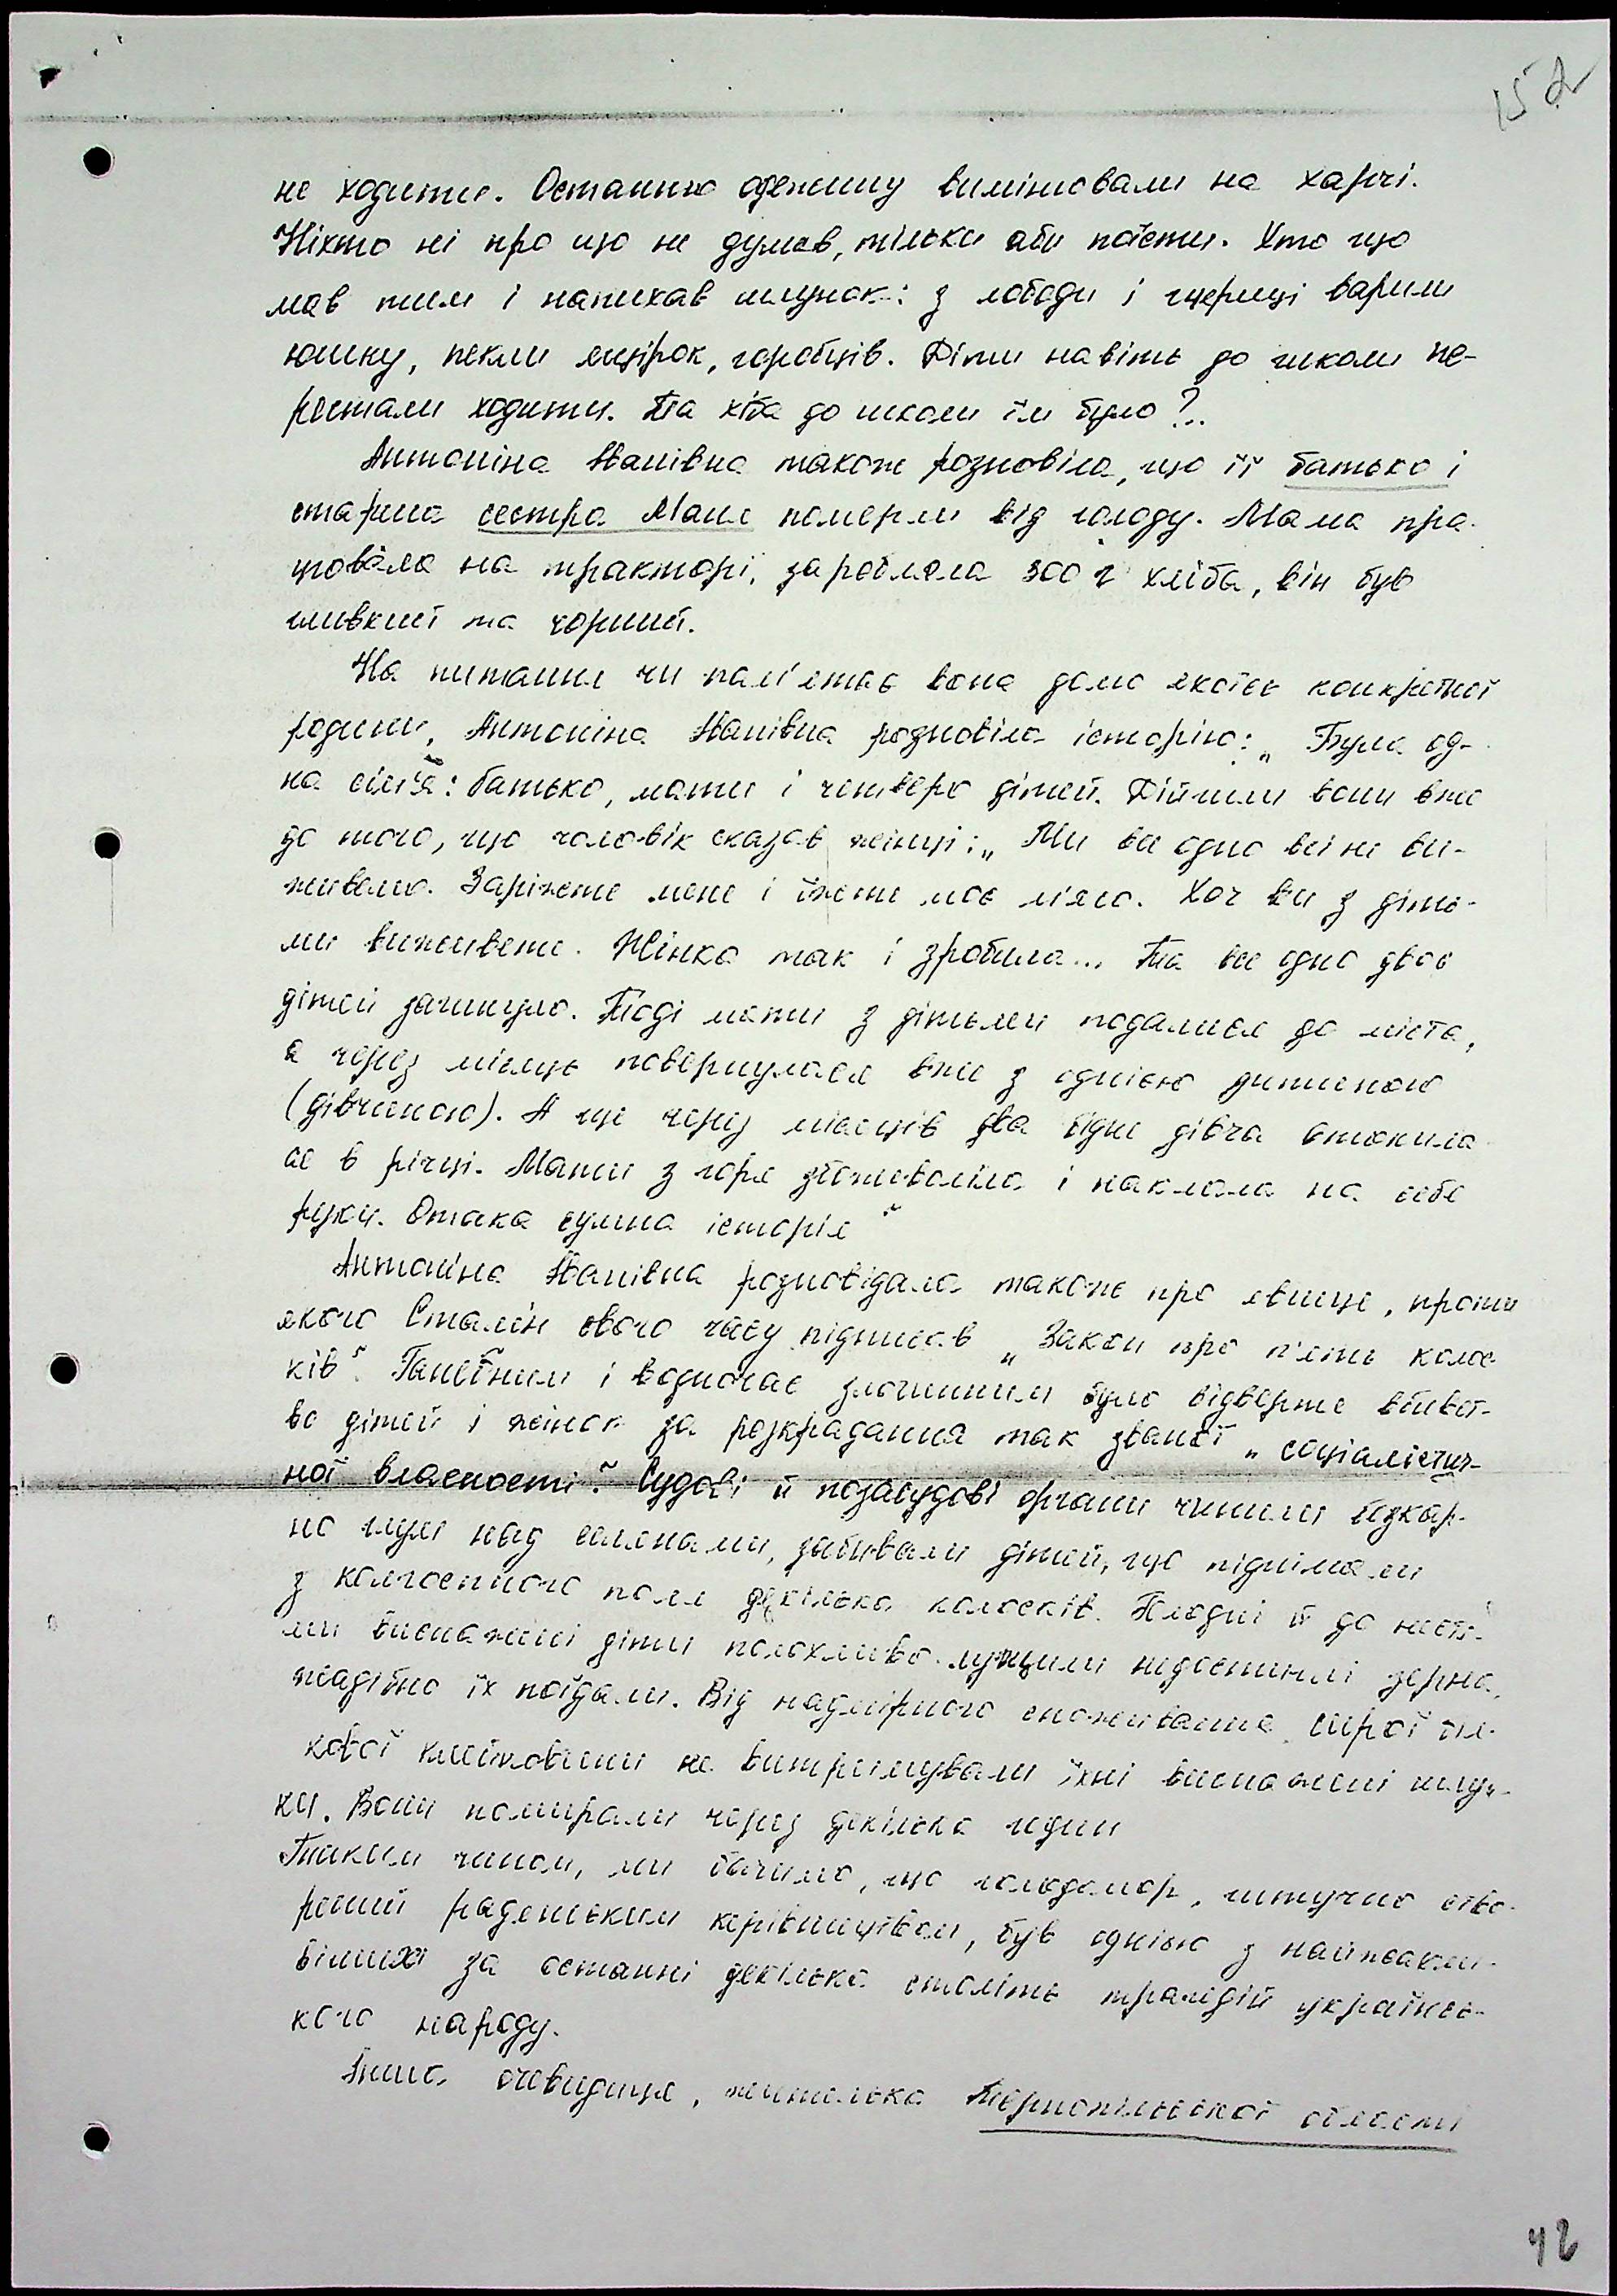 152
не ходити. Останню одежину вимінювали на харчі.
Ніхто ні про що не думав, тільки аби поїсти. Хто що
мав тим і напихав шлунок: з лободи і щериці варили
юшку, пекли ящірок, горобців. Діти навіть до школи пе-
рестали ходити. Та хіба до школи їм було?..
Антоніна Іванівна також розповіла, що її батько і
старша сестра Маня померли від голоду. Мама пра-
цювала на тракторі, заробляла 300 г хліба, він був
глевкий та чорний.
На питання чи пам'ятає вона долю якоїсь конкретної
родини, Антоніна Іванівна розповіла історію: „Була од-
на сім'я: батько, мати і четверо дітей. Дійшли вони вже
до того, що чоловік сказав жінці: „Ми все одно всі не ви-
живемо. Заріжете мене і їжте моє м'ясо. Хоч ви з діть-
ми виживете. Жінка так і зробила... Та все одно двоє
дітей загинуло. Тоді мати з дітьми подалися до міста,
а через місяць повернулася вже з однією дитиною
(дівчиною). А ще через місяців два бідне дівча втопило
ся в річці. Мати з горя збожеволіла і наклала на себе
руки. Отака сумна історія"
Антоніна Іванівна розповідала також про явище, проти
якого Сталін свого часу підписав „Закон про п'ять колос
ків". Ганебним і водночас злочинним було відверте вбивст-
во дітей і жінок за розкрадання так званої „соціалістич-
ної власності". Судові й позасудові органи чинили безкар-
но глум над селянами, забивали дітей, що піднімали
з колгоспного поля декілька колосків. Голодні й до нестя-
ми виснажені діти полохливо лущили недостиглі зерна,
жадібно їх поїдали. Від надмірного споживання сирої біл-
кової клейковини не витримували їхні виснажені шлун-
ки. Вони помирали через декілька годин
Таким чином, ми бачимо, що голодомор, штучно ство-
рений радянським керівництвом, був однією з найжахли-
віших за останні декілька століть трагедій українсь-
кого народу.
Інша очевидиця, жителька Тернопільської області
42